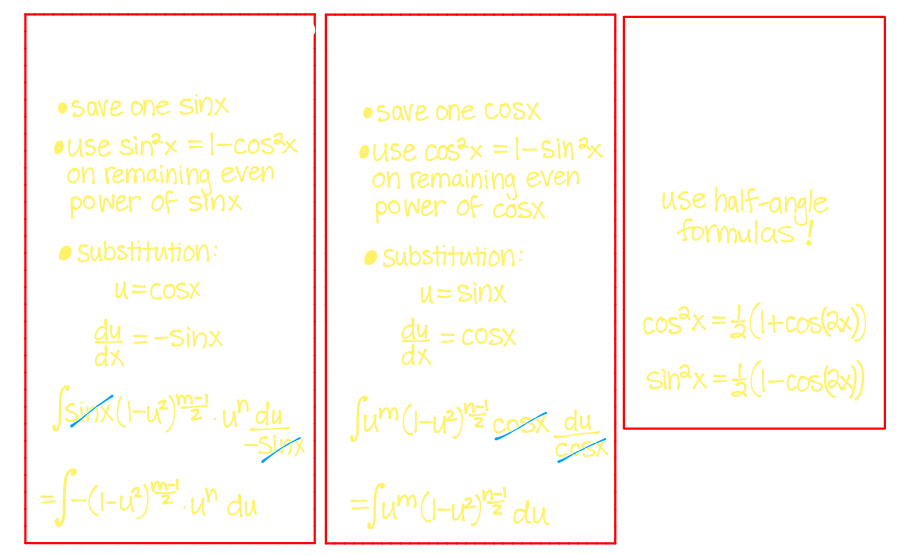 •save one sinx
•use sin²x = 1-cos²x
on remaining even
power of sinx
• substitution:
u=cosx
du/dx = -sinx
∫sinx(1-u²)^((m-1)/2) · uⁿ du/-sinx
=∫-(1-u²)^((m-1)/2) · uⁿ du
•save one cosx
•use cos²x = 1-sin²x
on remaining even
power of cosx
• substitution:
u=sinx
du/dx = cosx
∫uᵐ(1-u²)^((n-1)/2) cosx du/cosx
=∫uᵐ(1-u²)^((n-1)/2) du
use half-angle
formulas!
cos²x = ½(1+cos(2x))
sin²x = ½(1-cos(2x))